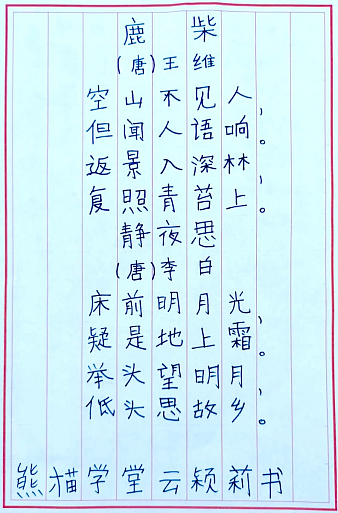 鹿柴
(唐)王维
空山不见人,
但闻人语响。
返景入深林,
复照青苔上。
静夜思
(唐)李白
床前明月光,
疑是地上霜。
举头望明月,
低头思故乡。
熊猫学堂云颖莉书